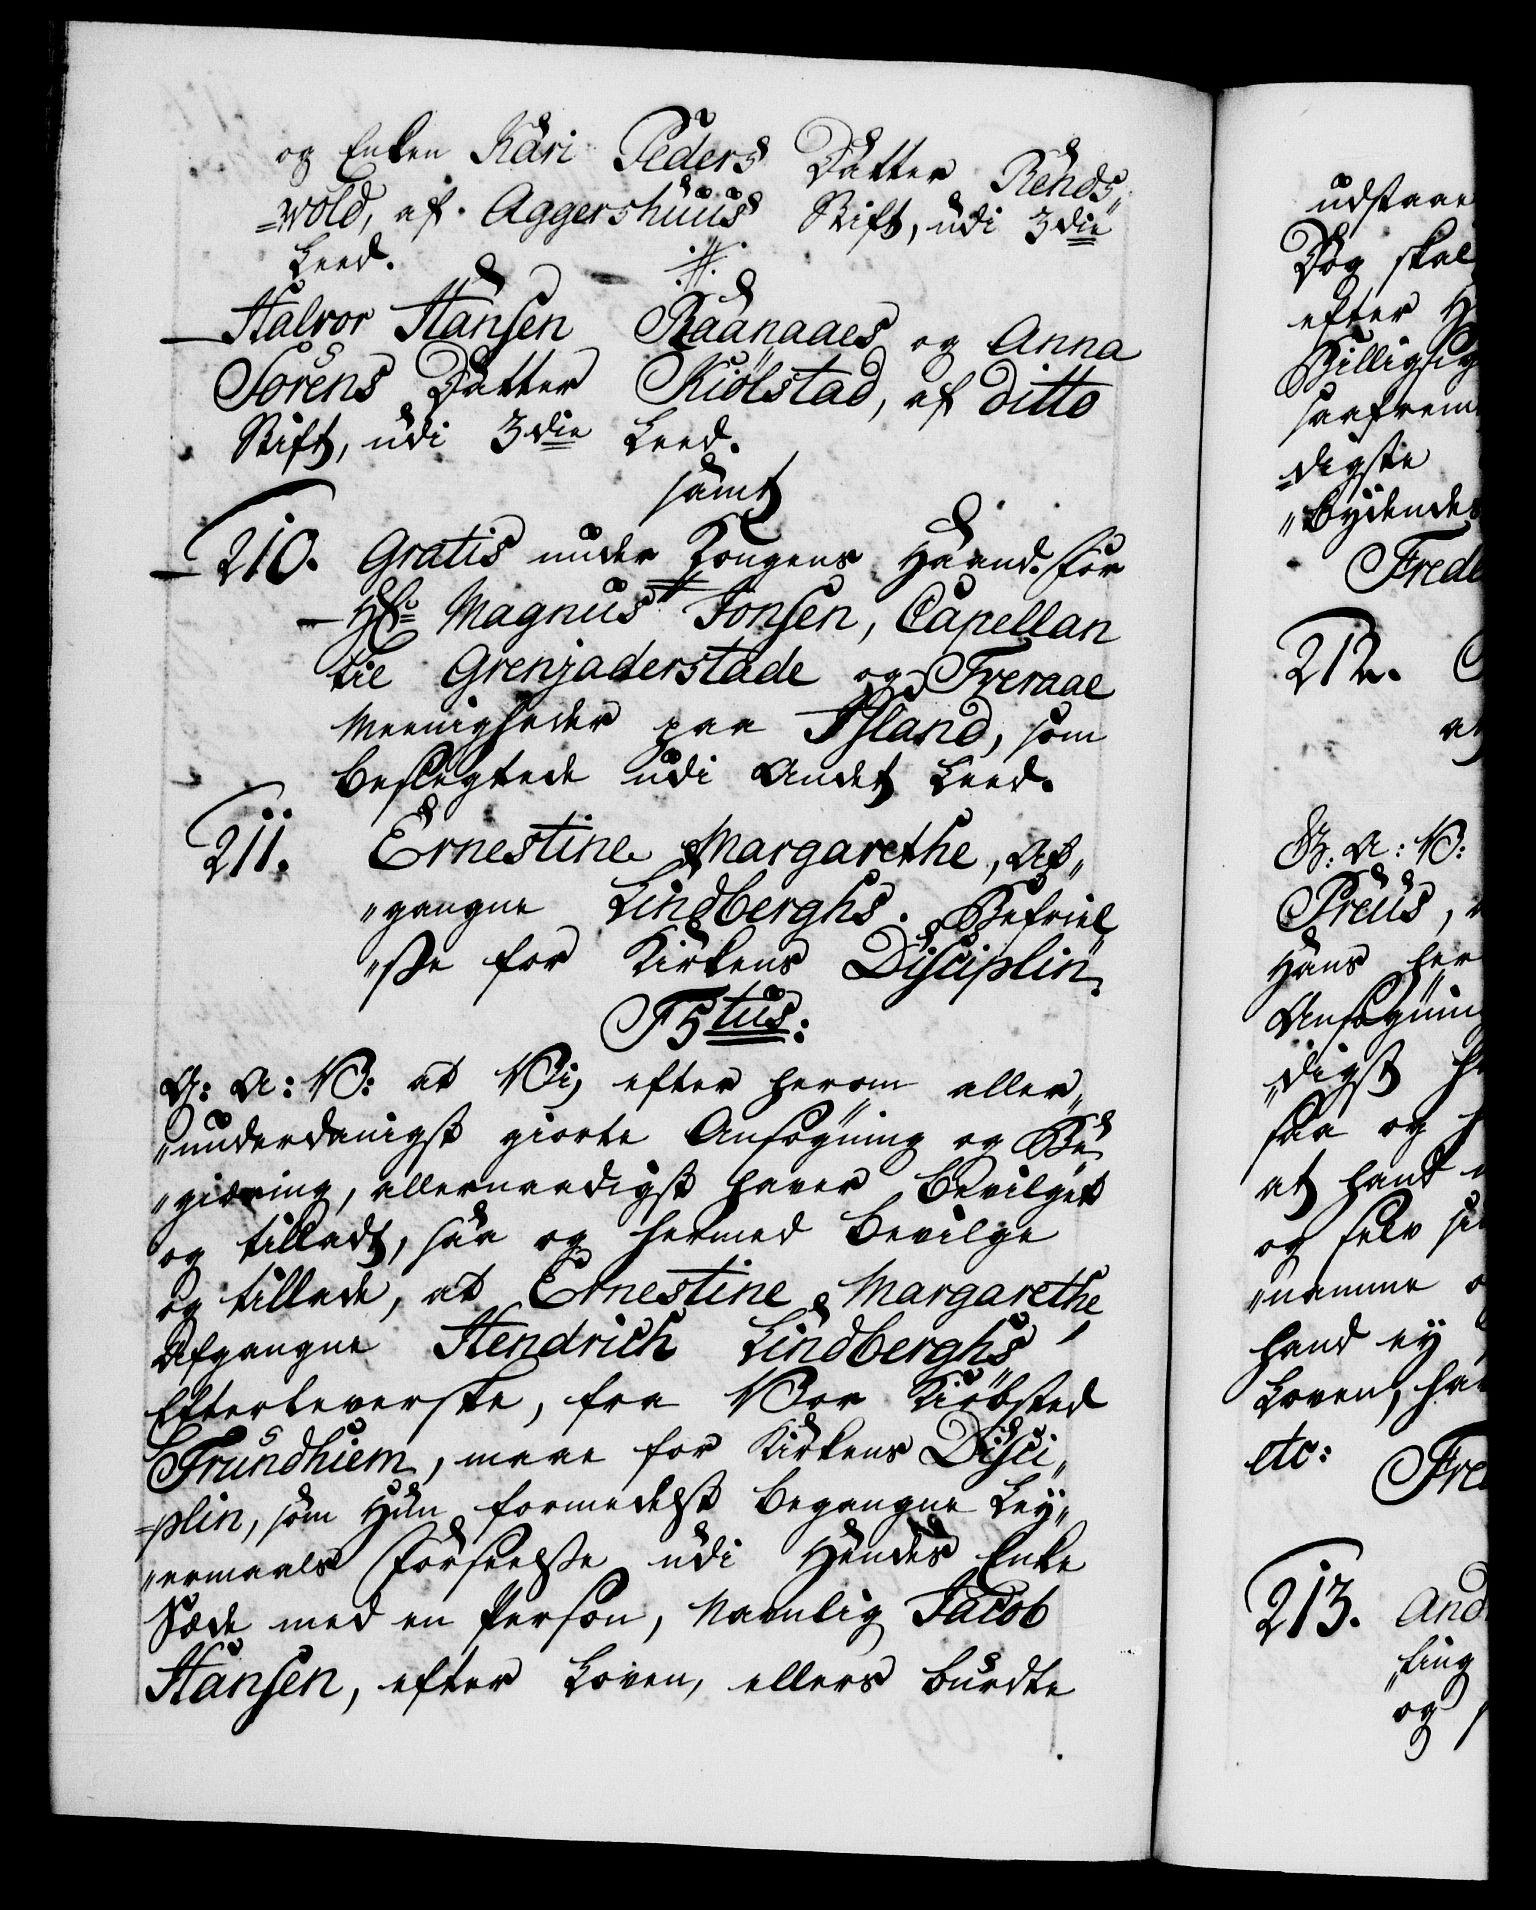 og Enken Kari Peders Datter Rends„
=wold, af Aggershuus Stift, udi 3die
Leed.
Halvor Hansen Raanaaes og Anna
Sørens Datter Kiølstad, af ditto
Stift, udi 3die Leed.
samt
210. Gratis under Kongens Haand. for
Hr. Magnus Jonsen, Capellan
til Grenjaderstade og Tveraae
Meenigheder paa Island, som
beslegtede udi Andet Leed.
211. Ernestine Margarethe, Af„
„gangne Lindberghs. Befriel„
„sse for Kirkens Disciplin.
F5tus:
G: A: V: at Vi, efter herom aller„
„underdanigst giorte Ansøgning og Be„
„giæring, allernaadigst haver bevilget
og tilladt, saa og hermed bevilge
og tillade, at Ernestine Margarethe,
Afgangne Hendrich Lindberghs
Efterleverske, fra Vor Kiøbsted
Trundhiem, maae for Kirkens Disci„
=plin, som Hun formedelst begangne Ley„
„ermaals Forseelsse udi Hendes Enke
Sæde med en Person, Navnlig Jacob
Hansen, efter Loven, ellers burdte
udstaae
Dog skal
efter H
Billigsig
saafrem
=digste
„bydendes
Frede
212.
at
G: A: V:
Preus,
Hans her
Ansøgning
„digst ha
saa og h
at hand
og selv si
„namme o
hand ey
Loven, ha
etc: Fre
213. And
„ling
og